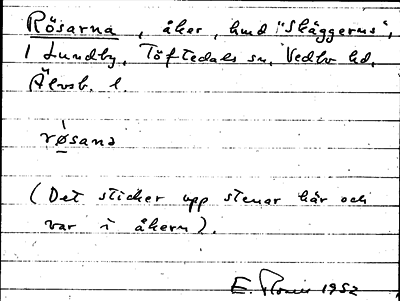 Rösarna, åker, hmd i "Skäggerns",
1 Lundby, Töftedals sn, Vedbo hd,
Älvsb. l.
røsana
(Det sticker upp stenar här och
var i åkern).
E. 1952